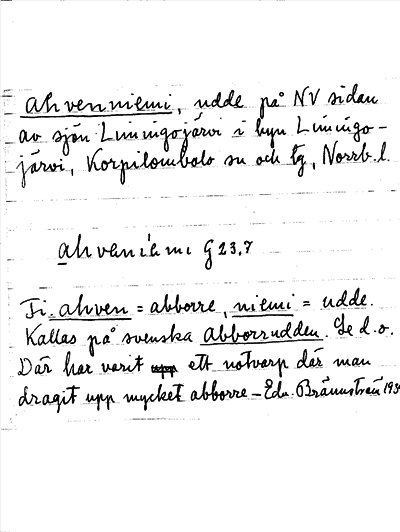 Ahvenniemi, udde på NV sidan
av sjön Liningojärvi i byn Liningo-
järvi, Korpilombolo sn och tg, Norrb.l.
ahvenìemi G23,7
Fi. ahven = abborre, niemi = udde.
Kallas på svenska Abborrudden. Se d.o.
Där har varit ett notvarp där man
dragit upp mycket abborre – Edv. Brännström 193